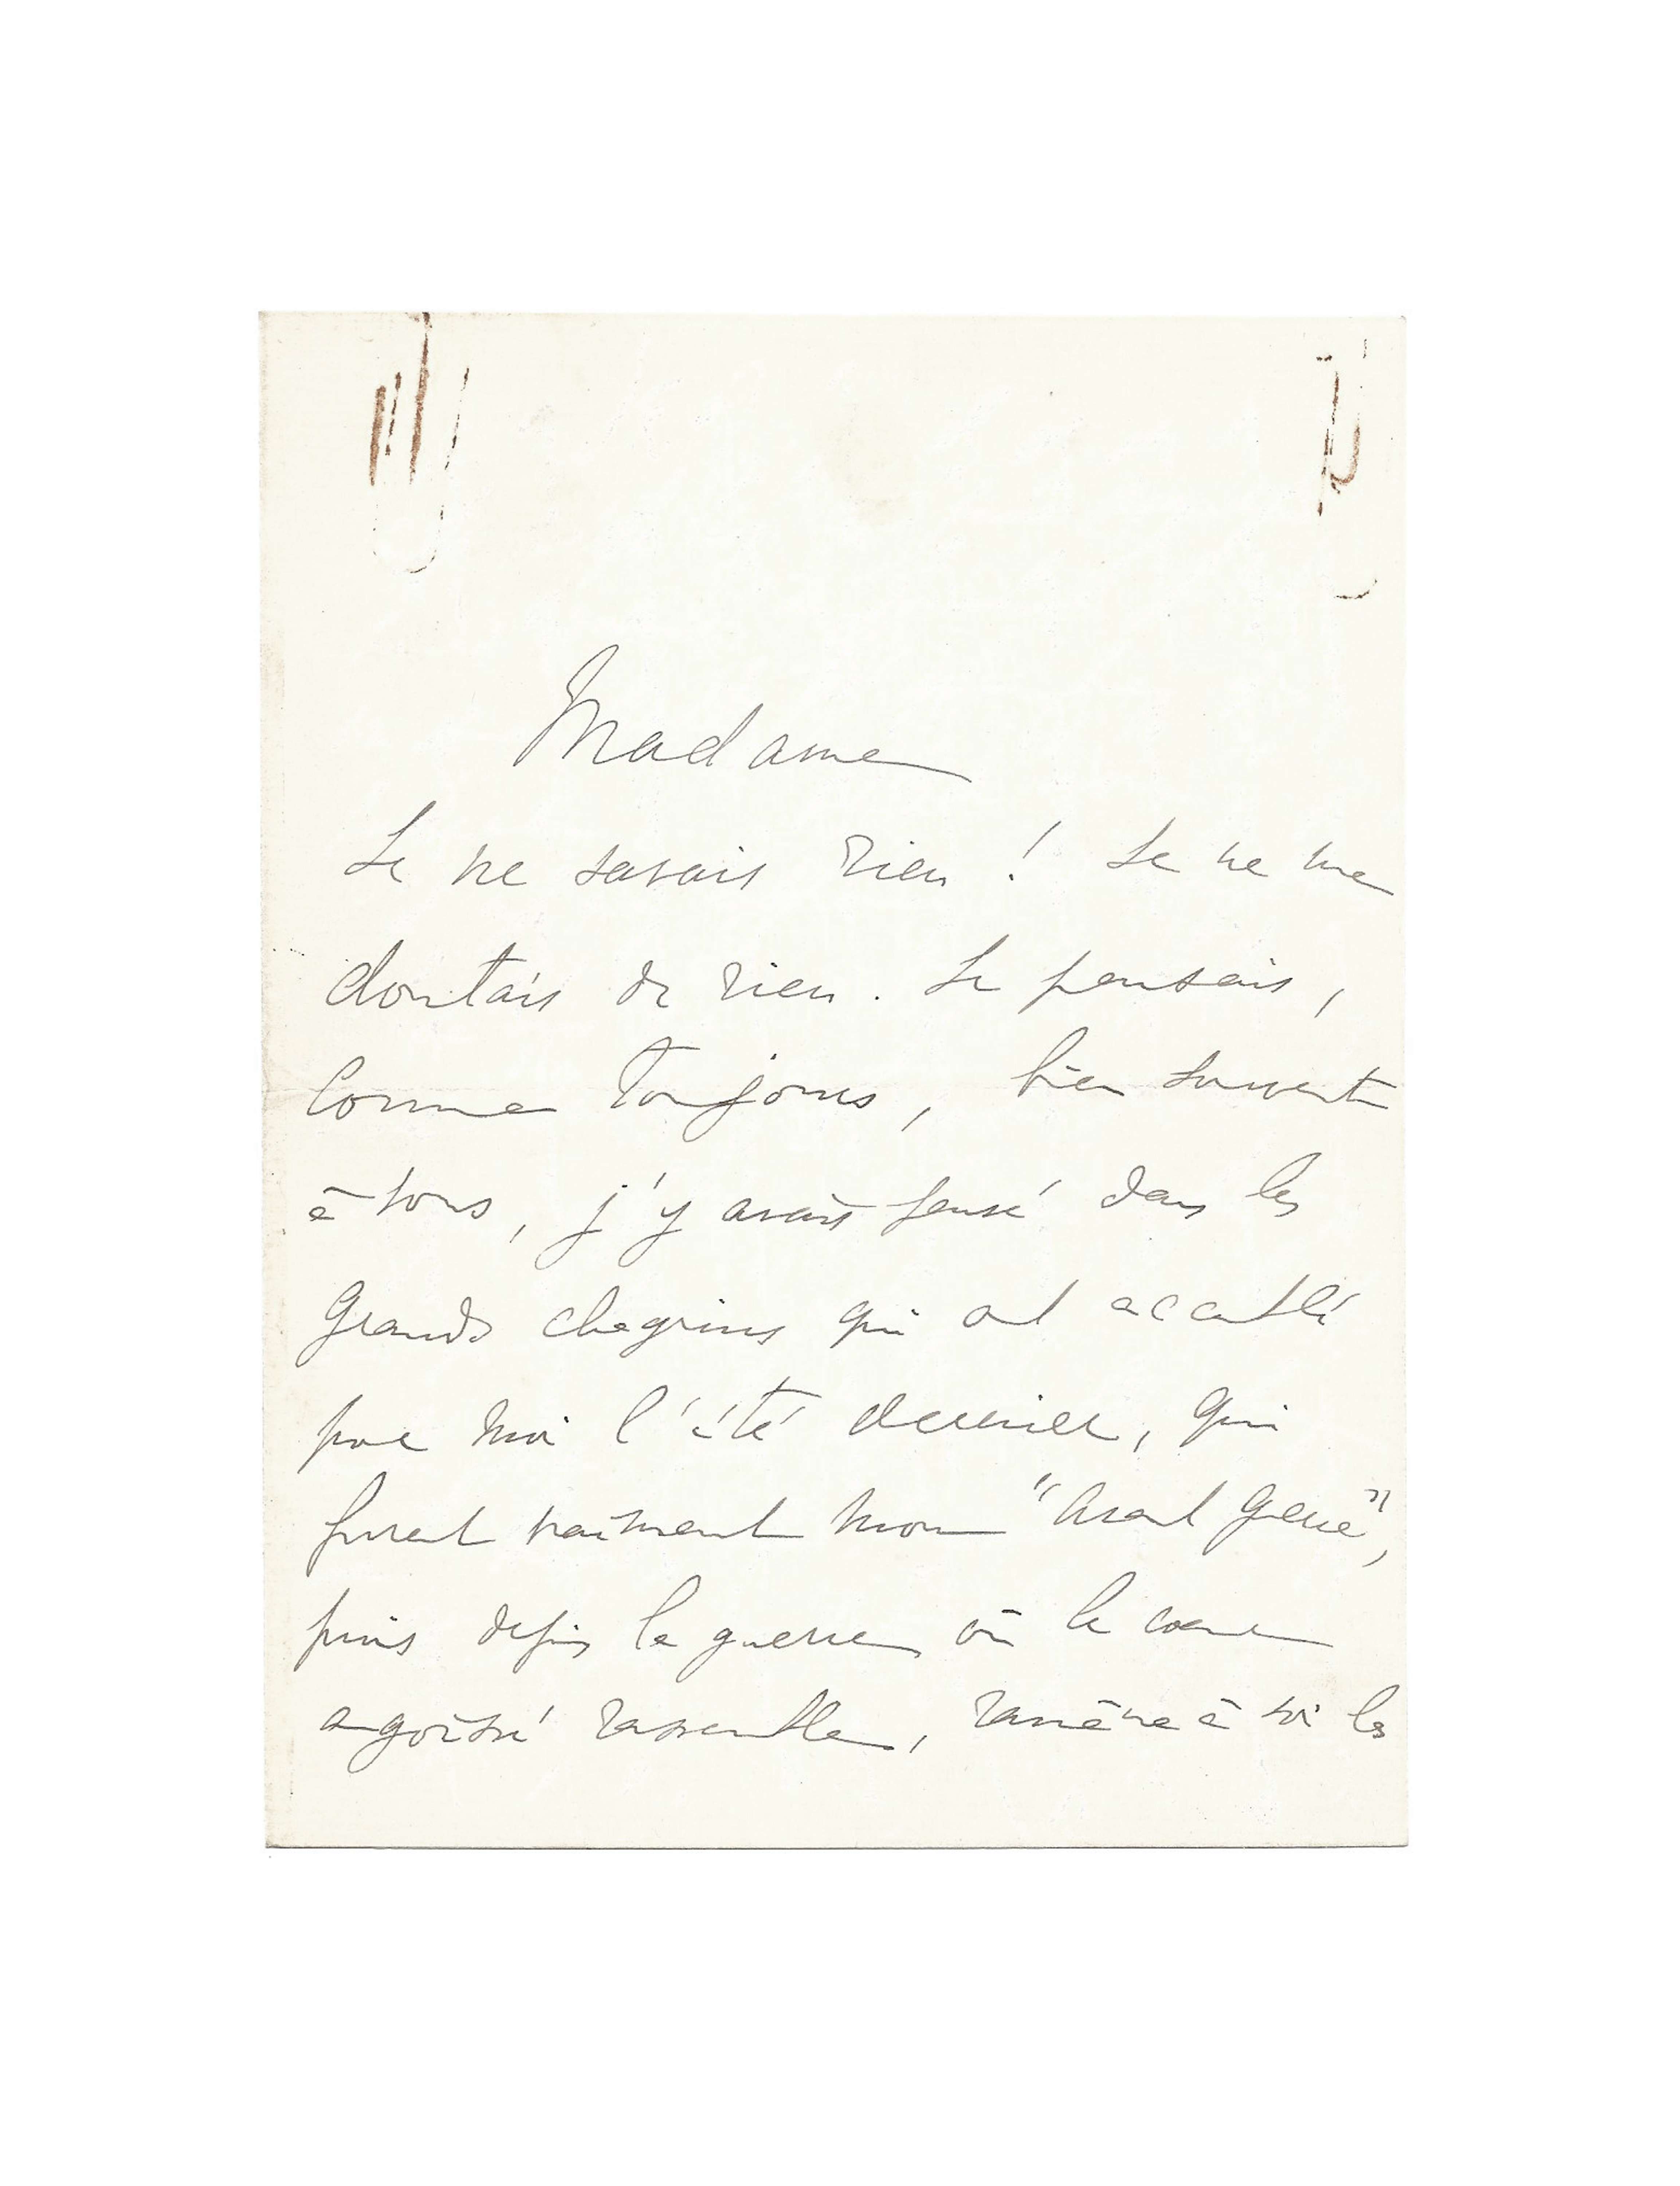 Madame
Je ne savais rien ! Je ne me
doutais de rien. Je pensais,
comme toujours, bien souvent
à vous, j'y avais pensé dans les
grands chagrins qui ont accablé
pour moi l'été dernier, qui
furent vraiment mon "Avant guerre",
puis depuis la guerre où le cœur
angoissé rassemble, ramène à soi les